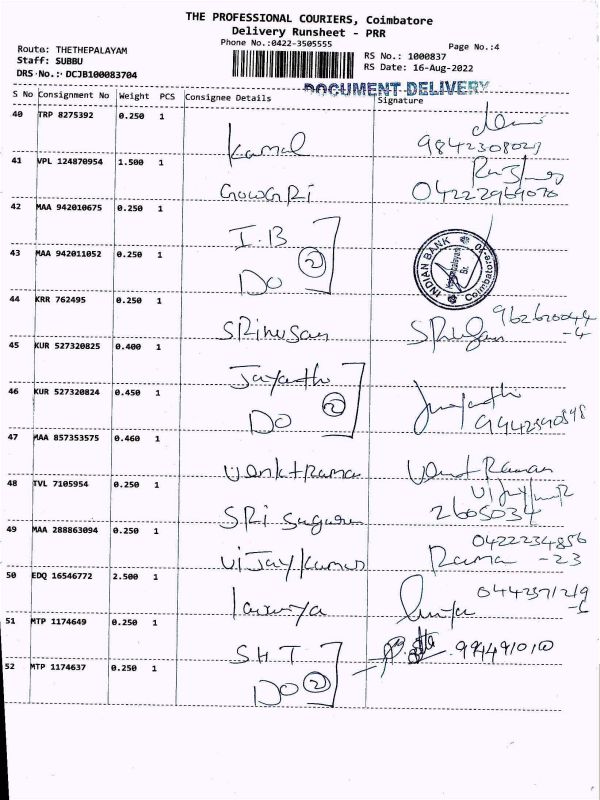 THE PROFESSIONAL COURIERS, Coimbatore
Delivery Runsheet - PRR
Phone No.:0422-3505555
Page No.:4
Route: THETHEPALAYAM
Staff: SUBBU
DRS No.: DCJB100083704
RS No.: 1000837
RS Date: 16-Aug-2022
DOCUMENT DELIVERY
S No Consignment No Weight PCS Consignee Details Signature
40 TRP 8275392 0.250 1
Kamal
41 VPL 124870954 1.500 1
GOWGRI
42 MAA 942010675 0.250 1
I.B
43 MAA 942011052 0.250 1
DO 2
INDIAN BANK
Coimbatore
44 KRR 762495 0.250 1
SRinusan
45 KUR 527320825 0.400 1
Jayanthi
46 KUR 527320824 0.450 1
DO 2
47 MAA 857353575 0.460 1
Venkatrama Venkat Raman
48 TVL 7105954 0.250 1
SRi Suguru 2605034
49 MAA 288863094 0.250 1
Vijay Kumar Rama
50 EDQ 16546772 2.500 1
51 MTP 1174649 0.250 1
S.H.T
52 MTP 1174637 0.250 1
DO 2